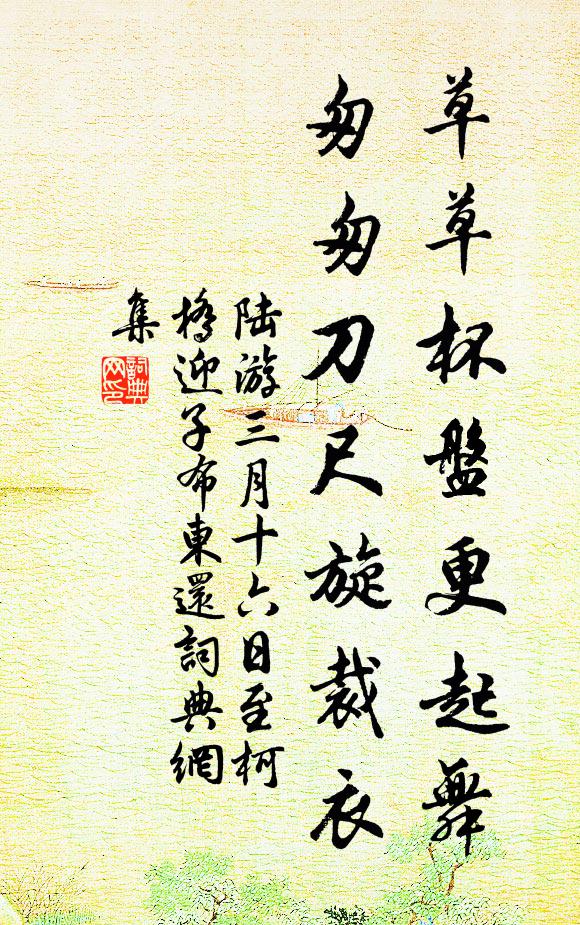 草草杯盤更起舞
匆匆刀尺旋裁衣
陆游三月十六日至柯
橋迎子布東還詞典網
集
詞典
网印